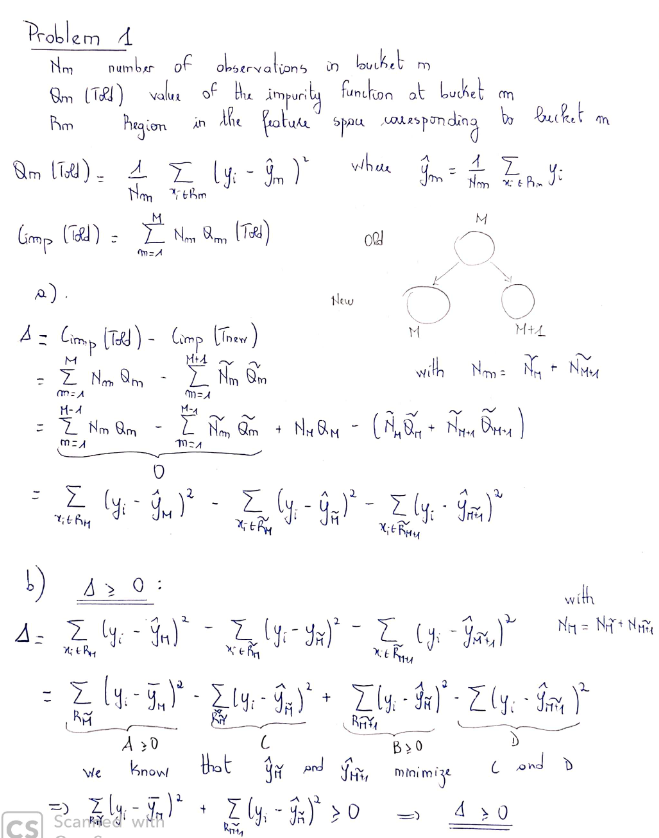 Problem 1
Nm number of observations in bucket m
Qm (Told) value of the impurity function at bucket m
Rm Region in the feature space corresponding to bucket m
Qm (Told) = 1/Nm Σ_{xi∈Rm} (yi - ŷm)² where ŷm = 1/Nm Σ_{xi∈Rm} yi
Cimp (Told) = Σ_{m=1}^{M} Nm Qm (Told)
Old
M
New
M
M+1
a).
Δ = Cimp (Told) - Cimp (Tnew)
= Σ_{m=1}^{M} Nm Qm - Σ_{m=1}^{M+1} Ñm Q̃m
with Nm = ÑM + ÑM+1
= Σ_{m=1}^{M-1} Nm Qm - Σ_{m=1}^{M-1} Ñm Q̃m + NM QM - (ÑM Q̃M + ÑM+1 Q̃M+1)
0
= Σ_{xi∈RM} (yi - ŷM)² - Σ_{xi∈R̃M} (yi - ŷM̃)² - Σ_{xi∈R̃M+1} (yi - ŷM̃+1)²
b) Δ ≥ 0 :
with
NM = NM̃ + NM̃+1
Δ = Σ_{xi∈RM} (yi - ŷM)² - Σ_{xi∈R̃M} (yi - yM̃)² - Σ_{xi∈R̃M+1} (yi - ŷM̃+1)²
= Σ_{RM̃} (yi - ȳM)² - Σ_{RM̃} (yi - ŷM̃)² + Σ_{RM̃+1} (yi - ŷM̃)² - Σ (yi - ŷM̃+1)²
A ≥ 0 C B ≥ 0 D
we know that ŷM̃ and ŷM̃+1 minimize C and D
⇒ Σ_{RM̃} (yi - ȳM)² + Σ_{RM̃+1} (yi - ŷM̃)² ≥ 0 ⇒ Δ ≥ 0
CS Scanned with